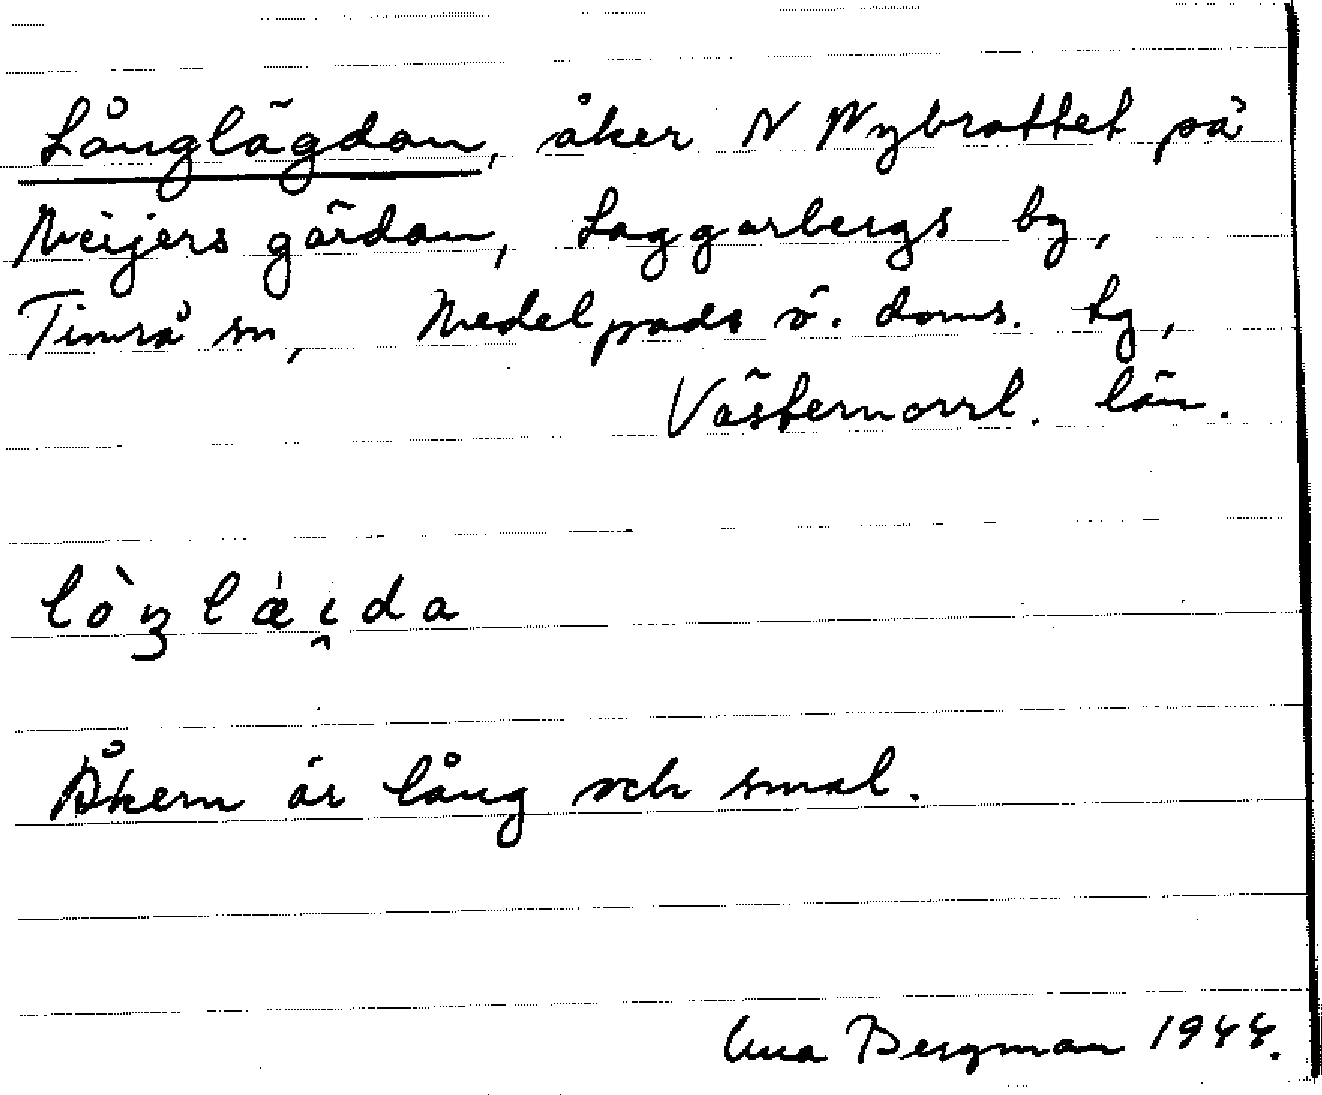 Långlägdan, åker N Nybrottet på
Meijers gärdan, Laggarbergs by,
Timrå sn, Medelpads ö. doms. tg,
Västernorrl. län.
lòŋlæ̍i̯da
Åkern är lång och smal.
Bergman 1944.